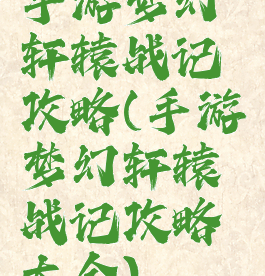 手游梦幻
轩辕战记
攻略(手游
梦幻轩辕
战记攻略
大全)